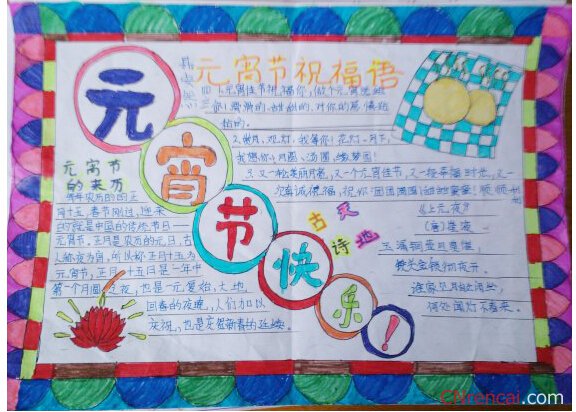 元宵节快乐！
元宵节祝福语
1.元宵佳节祝福你，做个元宵送给
你：滑滑的、甜甜的、对你的思情粘
粘的。
2.皓月、观灯、我等你！花灯、月下、
我想你！月圆、汤圆、缘梦圆！
3.又一轮美丽月亮，又一个元宵佳节，又一段幸福时光，又一
元宵节
的来历
每年农历的的正
月十五，春节刚过，迎来
的就是中国的传统节日——
元宵节。正月是农历的元月，古
人称夜为宵，所以称正月十五为
元宵节。正月十五日是一年中
第一个月圆之夜，也是一元复始，大地
回春的夜晚，人们加以
庆祝，也是庆贺新春的延续。
古灵
诗地
《上元夜》
玉漏铜壶且莫催，
铁关金锁彻夜开。
谁家见月能闲坐，
何处闻灯不看来。
CNrencai.com